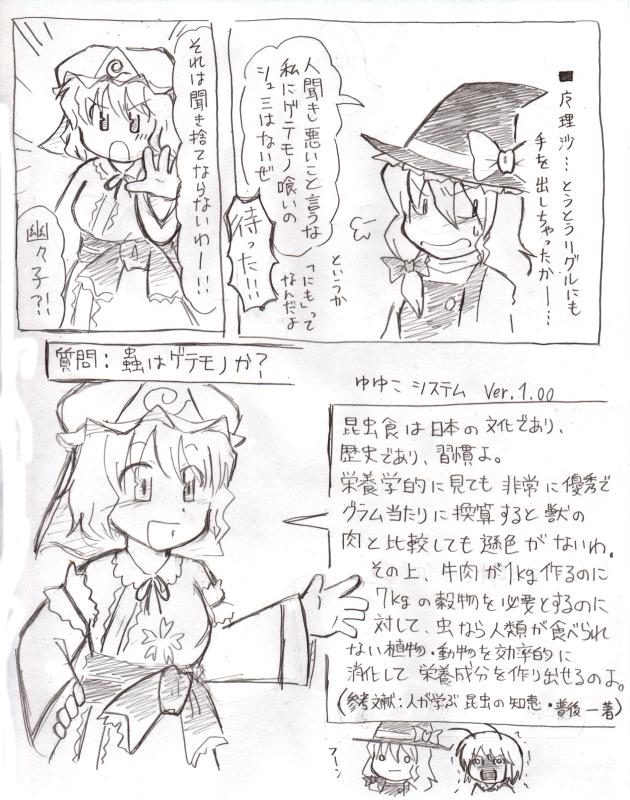 ■魔理沙…とうとうリグルにも
手を出しちゃったか―…
人聞き悪いこと言うな
私にゲテモノ喰いの
シュミはないぜ
というか
「にも」って
なんだよ
待った!!
それは聞き捨てならないわー!!
幽々子?!
質問:蟲はゲテモノか?
ゆゆこ システム Ver.1.00
昆虫食は日本の文化であり、
歴史であり、習慣よ。
栄養学的に見ても非常に優秀で
グラム当たりに換算すると獣の
肉と比較しても遜色がないわ。
その上、牛肉が1kg作るのに
7kgの穀物を必要とするのに
対して、虫なら人類が食べられ
ない植物・動物を効率的に
消化して栄養成分を作り出せるのよ。
(参考文献:人が学ぶ昆虫の知恵・普後一著)
フーン